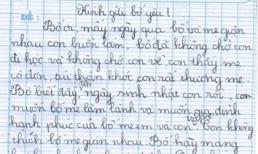 Kính gửi bố yêu!
ĐỀ:
Bố ơi, mấy ngày qua bố và mẹ giận
nhau con buồn lắm, bố đã không chở con
đi học và không chở con về con thấy mẹ
cô đơn, tủi thân khóc con rất thương mẹ.
Bố biết đây ngày sinh nhật con rồi, con
muốn bố mẹ làm lành và muốn gia đình
hạnh phúc của bố mẹ em và con. Con không
thích bố mẹ gian nhau. Bố hãy mang